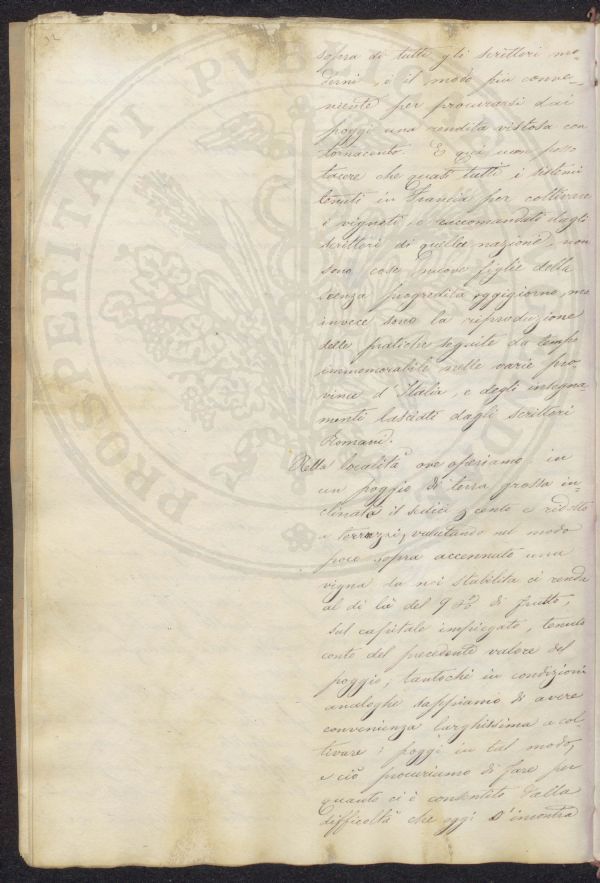 32
sopra di tutti gli scrittori mo=
derni, è il modo più conve=
niente per procurarsi dai
poggi una rendita vistosa con
tornaconto. E quì non posso
tacere che quasi tutti i sistemi
tenuti in Francia per coltivare
i vigneti, e raccomandati dagli
scrittori di quella nazione, non
sono cose nuove figlie della
scienza progredita oggigiorno, ma
invece sono la riproduzione
delle pratiche seguite da tempo
immemorabile nelle varie pro=
vincie d'Italia, e degli insegna
menti lasciati dagli scrittori
Romani.
Nella località ove operiamo in
un poggio di terra grossa in=
clinata il sedici % cento e ridotto
a terrazzi, valutando nel modo
poco sopra accennato una
vigna da noi stabilita ci rende
al di là del 9 % di frutto,
sul capitale impiegato, tenuto
conto del precedente valore del
poggio; tantochè in condizioni
analoghe sappiamo di avere
convenienza larghissima a col=
tivare i poggi in tal modo,
e ciò procuriamo di fare per
quanto ci è consentito dalla
difficoltà che oggi s'incontra
PROSPERITATI PUBLICAE